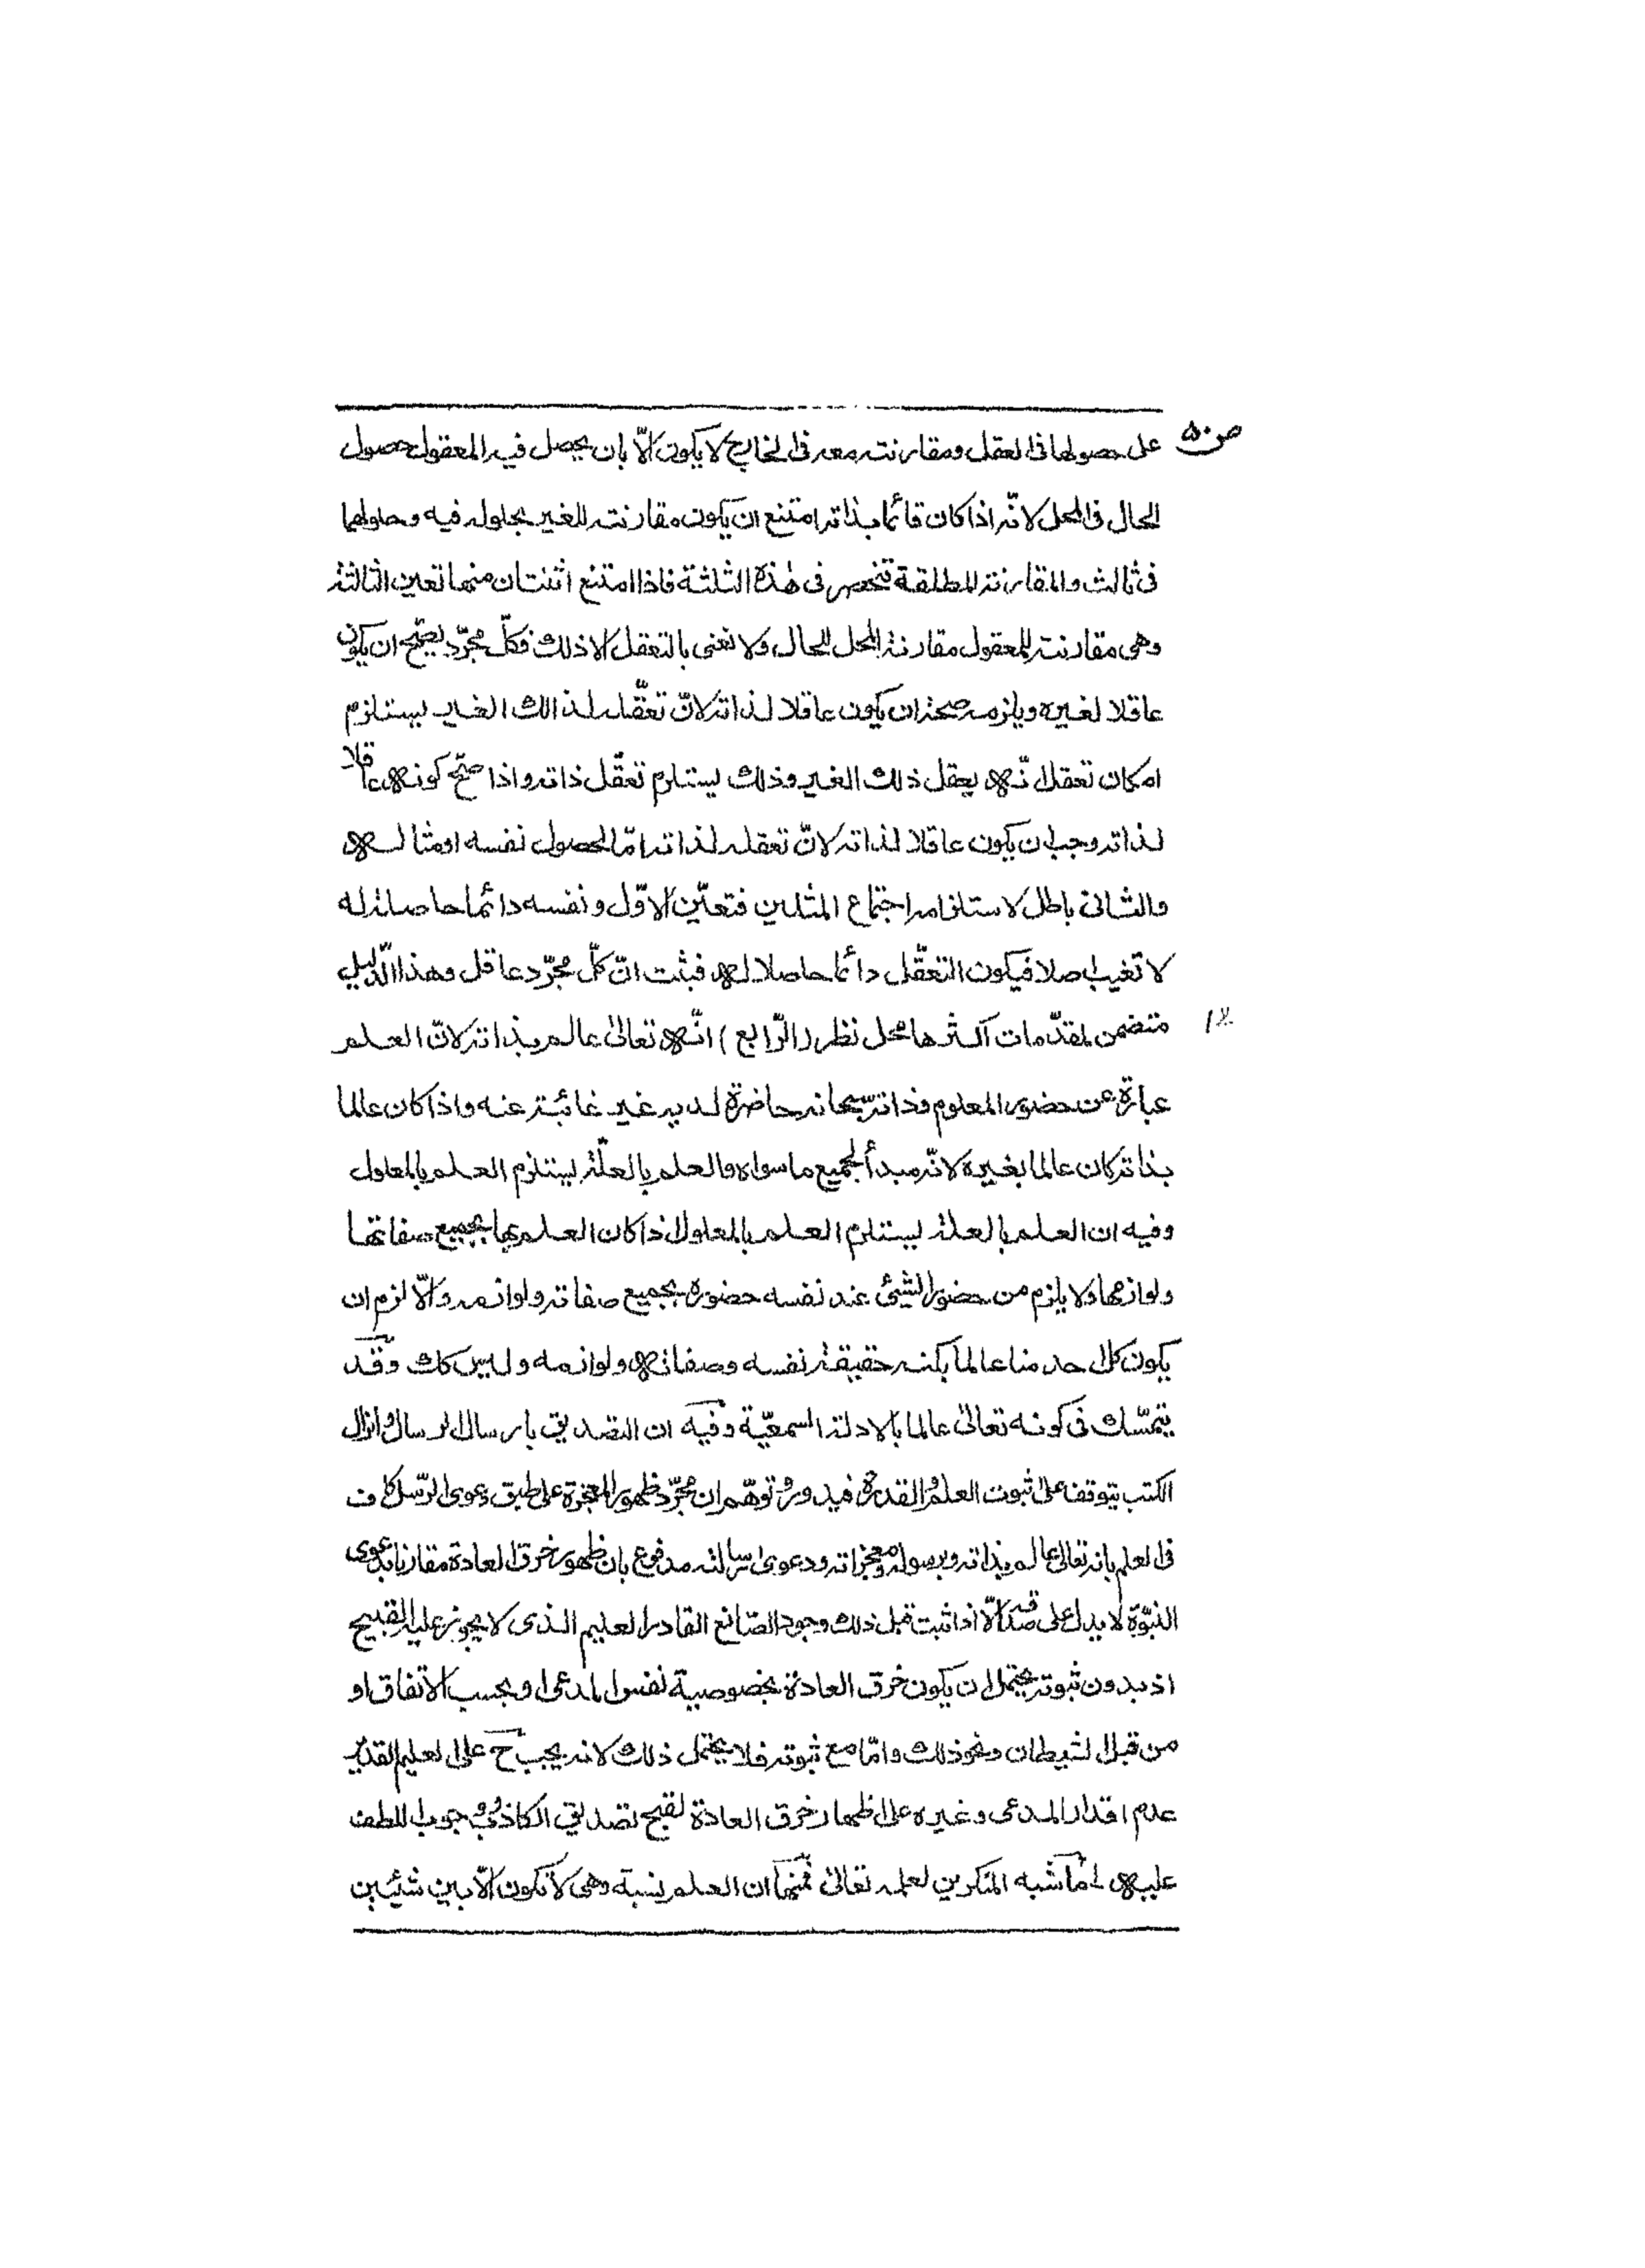 ص٥٠
على حصولها فى العقل ومقارنته معه فى الخارج لا يكون الّا بان يحصل فيه المعقول حصول
الحال فى المحل لانّه اذا كان قائما بذاته امتنع ان يكون مقارنته للغير بحلوله فيه و حلولهما
فى ثالث والمقارنة المطلقة تنحصر فى هذه الثلثة فاذا امتنع اثنتان منها تعين الثالثة
وهى مقارنته للمعقول مقارنة المحل للحال ولا نعنى بالتعقل الا ذلك فكلّ مجرّد يصحّ ان يكون
عاقلا لغيره ويلزمه صحة ان يكون عاقلا لذاته لانّ تعقّله لذالك الغير يستلزم
امكان تعقل انّه يعقل ذلك الغير وذلك يستلزم تعقّل ذاته واذا صحّ كونه عاقلا
لذاته وجب ان يكون عاقلا لذاته لانّ تعقله لذاته امّا لحصول نفسه او مثاله
والثانى باطل لاستلزامه اجتماع المثلين فتعيّن الاوّل ونفسه دائما حاصلة له
لا تغيب اصلا فيكون التعقّل دائما حاصلا له فبثت انّ كلّ مجرّد عاقل وهذا الدّليل
متضمن لمقدّمات اكثرها محل نظر (الرّابع) انّه تعالىٰ عالم بذاته لانّ العلم
عبارة عن حضور المعلوم وذاته سبحانه حاضرة لديه غير غائبة عنه واذا كان عالما
بذاته كان عالما بغيره لانّه مبدأ لجميع ما سواه والعلم بالعلّة يستلزم العلم بالمعلول
وفيه ان العلم بالعلة يستلزم العلم بالمعلول اذا كان العلم بها بجميع صفاتها
ولوازمها ولا يلزم من حضور الشيئ عند نفسه حضوره بجميع صفاته ولوازمه والّا لزم ان
يكون كل احد منا عالما بكنه حقيقة نفسه وصفاته ولوازمه و ليس كك وقد
يتمسّك فى كونه تعالىٰ عالما بالادلة السمعيّة وفيه ان التصديق بارسال الرسال و انزال
الكتب يتوقف على ثبوت العلم و القدرة فيدور و توهّم ان مجرّد ظهور المعجزة على طبق دعوى الرّسل كاف
فى العلم بانه تعالى عالم بذاته وبرسوله ومعجزاته ودعوى رسالته مدفوع بان ظهور خرق العادة مقارنا بدعوى
النبوّة لا يدل على صدقه الّا اذا ثبت قبل ذلك وجود الصّانع القادر العليم الذى لا يجوز عليه القبيح
اذ بدون ثبوته يحتمل ان يكون خرق العادة بخصوصية نفس المدعى او بحسب الاتفاق او
من قبل الشيطان ونحو ذلك وامّا مع ثبوته فلا يحتمل ذلك لانه يجب ح على العليم القدير
عدم اقدار المدعى وغيره على اظهار خرق العادة لقبح تصديق الكاذب و وجوب اللطف
عليه امّا شبه المنكرين لعلمه تعالىٰ فمنها ان العلم نسبة وهى لا تكون الّا بين شيئين